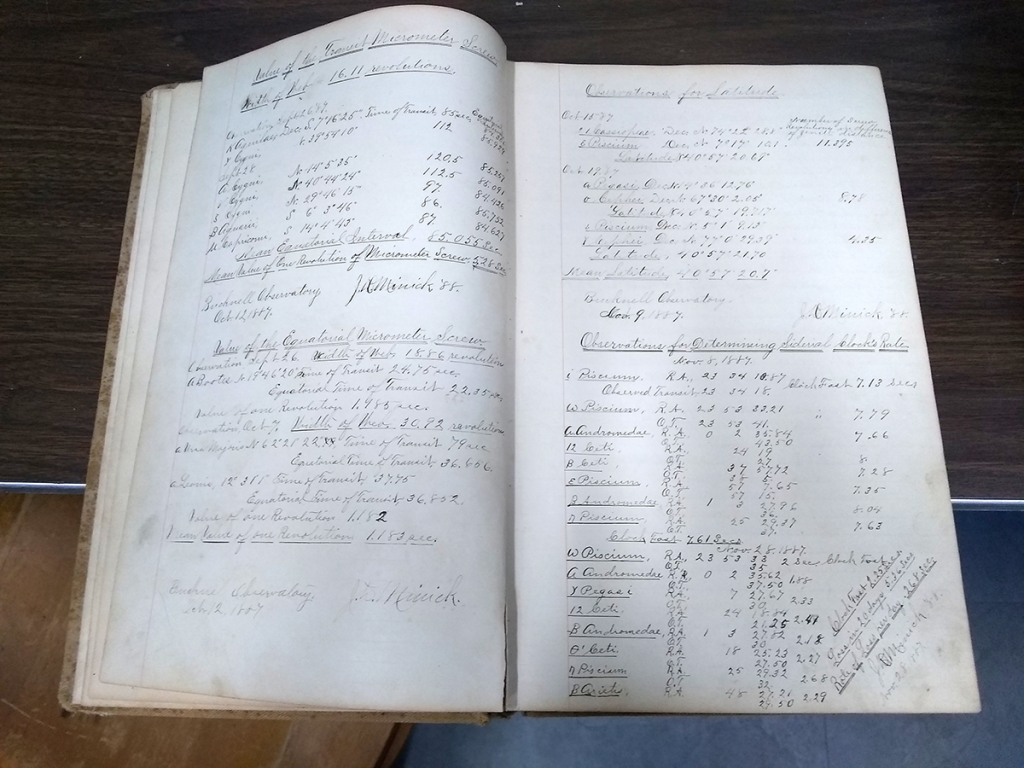 Value of the Transit Micrometer Screw
Width of Webs 16.11 revolutions.
Observation Sept 26, 87.
Dec. S. 7°46'25" Time of Transit 85 sec.
γ Cygni, N. 39°54'10" 112
Sept 28
N 14°5'35" 120.5
Cygni N 40°44'24" 112.5
Cygni N 29°46'15" 97.
β Aquarii, S 6° 3' 46" 86.
S 14°4'43" 87
Mean Equatorial Interval, 85.055 sec.
Mean Value of One Revolution of Micrometer Screw, 5.28 sec
Bucknell Observatory J. A. Minick '88.
Oct. 12, 1887.
Value of the Equatorial Micrometer Screw
Observation Sept. 26 Width of Webs 15.86 revolutions
Time of Transit 24.75 sec.
Equatorial Time of Transit 22.35 sec.
Value of one Revolution 1.485 sec.
Observation Oct. 7 Width of Webs. 30.82 revolutions
Time of Transit 79 sec
Equatorial Time of Transit 36.656.
α Leonis, 12° 31' 5" Time of Transit 37.75
Equatorial Time of Transit 36.852.
Value of one Revolution 1.182
Mean Value of one Revolution 1.183 sec.
Observatory. J. A. Minick.
12, 1887
Observations for Latitude.
Oct 15 '87 Number of Screw
Revolutions
Cassiopeiae, Dec. N. 74°22'
Piscium, Dec. N 7° 17' 10.1 11.295
Latitude N 40°57' 20.69"
Oct. 19, 87
Pegasi, Dec. N 4° 36' 12.76
o Cephei, Dec. N 67° 30' 2.05" 8.78
Latitude 40° 57' 19.717"
Piscium, Dec. N 5° 1' 9.13"
Cephei Dec. N 77° 0' 29.39 4.35
Latitude, 40° 57' 21.70
Mean Latitude, 40° 57' 20.7"
Bucknell Observatory.
Nov. 9, 1887. J. A. Minick '88.
Observations for Determining Sidereal Clock's Rate
Nov. 8, 1887.
i Piscium, R.A., 23 34 10.87 Clock Fast 7.13 secs
Observed Transit 23 34 18.
ω Piscium, R.A. 23 53 33.21 " 7.79
O.T. 23 53 41.
α Andromedae, R.A. 0 2 35.84 7.66
O.T. 43.50
12 Ceti, R.A. 24 19. 8
O.T. 27.
β Ceti, R.A. 37 57.72 7.28
O.T. 38 5.
ε Piscium, R.A. 57 7.65 7.35
O.T. 57 15.
β Andromedae, R.A. 1 3 27.96 8.04
O.T. 36.
η Piscium R.A. 25 29.37 7.63
O.T. 37.
Clock Fast 7.61 Secs
Nov. 28, 1887.
ω Piscium, R.A., 23 53 33 2 Sec. Clock Fast
O.T. 35
α Andromedae R.A. 0 2 35.62 1.88
O.T. 37.50
γ Pegasi R.A. 7 27.67 2.33
O.T. 30
12 Ceti, R.A. 24 2.41
O.T. 21.25
β Andromedae, R.A. 1 3 27.82 2.18
O.T. 30
θ' Ceti, R.A. 18 25.23 2.27
O.T. 27.50
η Piscium R.A. 25 29.32 2.68
O.T. 32
R.A. 48 27.21 2.29
29.50
Clock Fast 2.25 secs
Loss in 20 days 5.36 secs
Rate of Loss per day .268 sec.
J. A. Minick '88.
Nov. 28, 1887